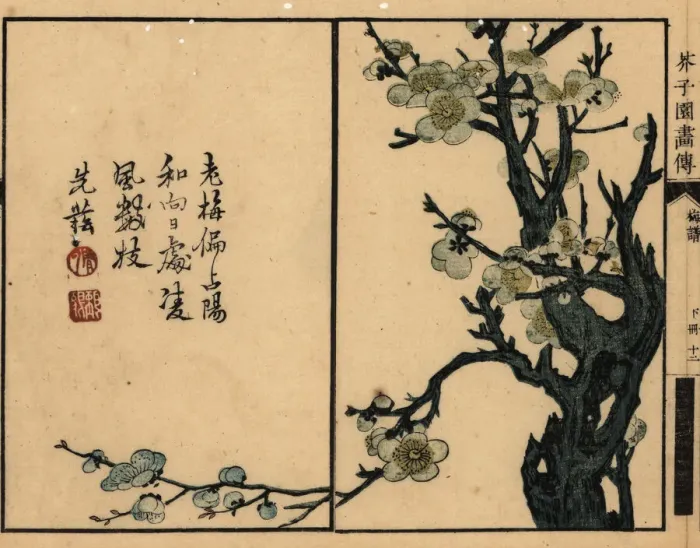 芥子園畫傳
梅譜
下冊 十二
老梅偏占陽
和向日處凌
風數枝
先